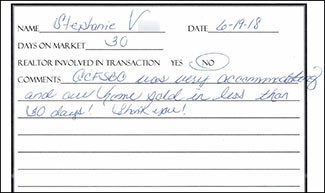 NAME Stephanie V
DATE 6-19-18
DAYS ON MARKET 30
REALTOR INVOLVED IN TRANSACTION YES NO
COMMENTS OCFSBO was very accommodating
and our home sold in less than
30 days! Thank you!